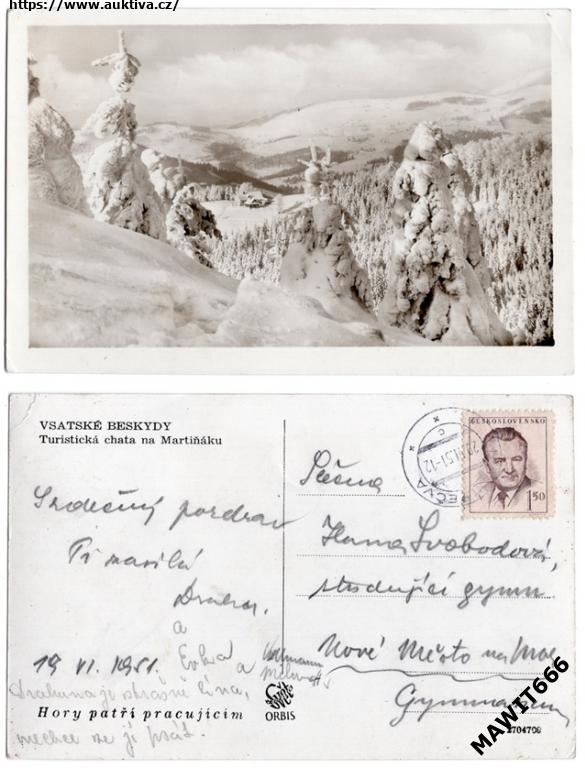 https://www.auktiva.cz/
VSATSKÉ BESKYDY
Turistická chata na Martiňáku
ČESKOSLOVENSKO
1.50
BEČVA
Slečna
Hana Svobodová,
studující gymn.
Nové Město na Mor
Gymnasium
Srdečný pozdrav
Ti posílá
a
a
19. VI. 1951.
je strašně líná,
nechce se jí psát.
Hory patří pracujícím
ORBIS
MAWIT666